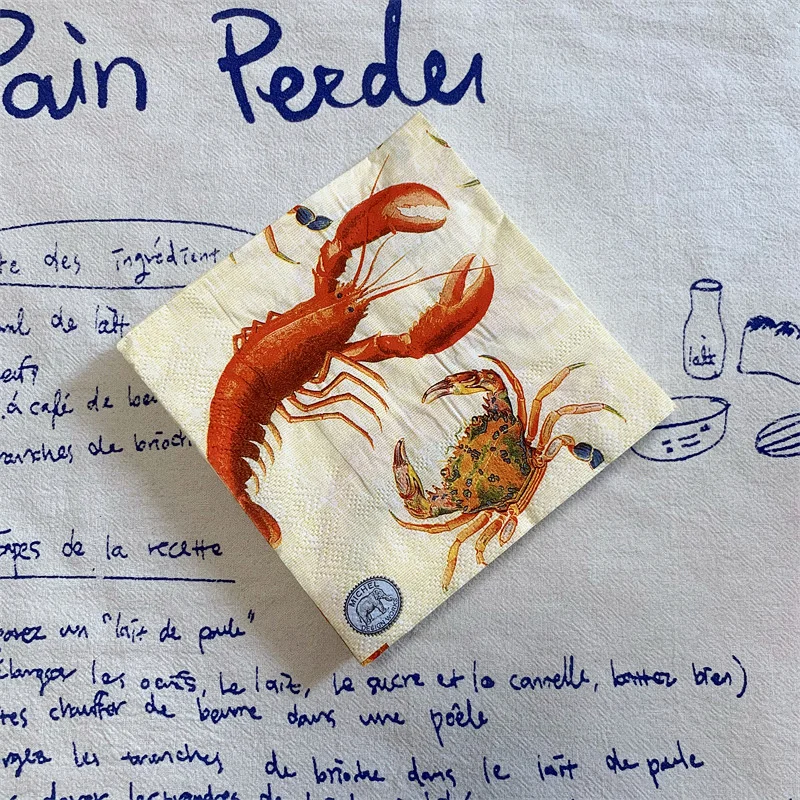 Pain Perdu
te des ingrédient
ml de lait
œufs
à café de beu
ranches de brioch
tapes de la recette
parez un "lait de poule"
élangez les oeufs, le lait, le sucre et la cannelle, battez bien)
tes chauffer de beurre dans une poêle
rgez les tranches de brioche dans le lait de poule
lait
MICHEL
DESIGN WORKS